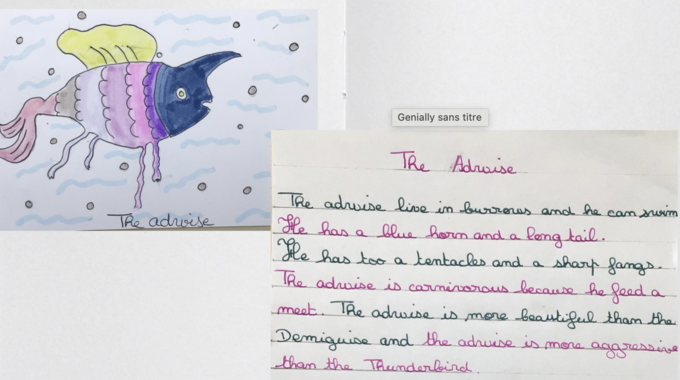 Genially sans titre
The adwise
The Adwise
The adwise live in burrows and he can swim
He has a blue horn and a long tail.
He has too a tentacles and a sharp fangs.
The adwise is carnivorous because he feed a
meet. The adwise is more beautiful than the
Demiguise and the adwise is more aggressive
than the Thunderbird.